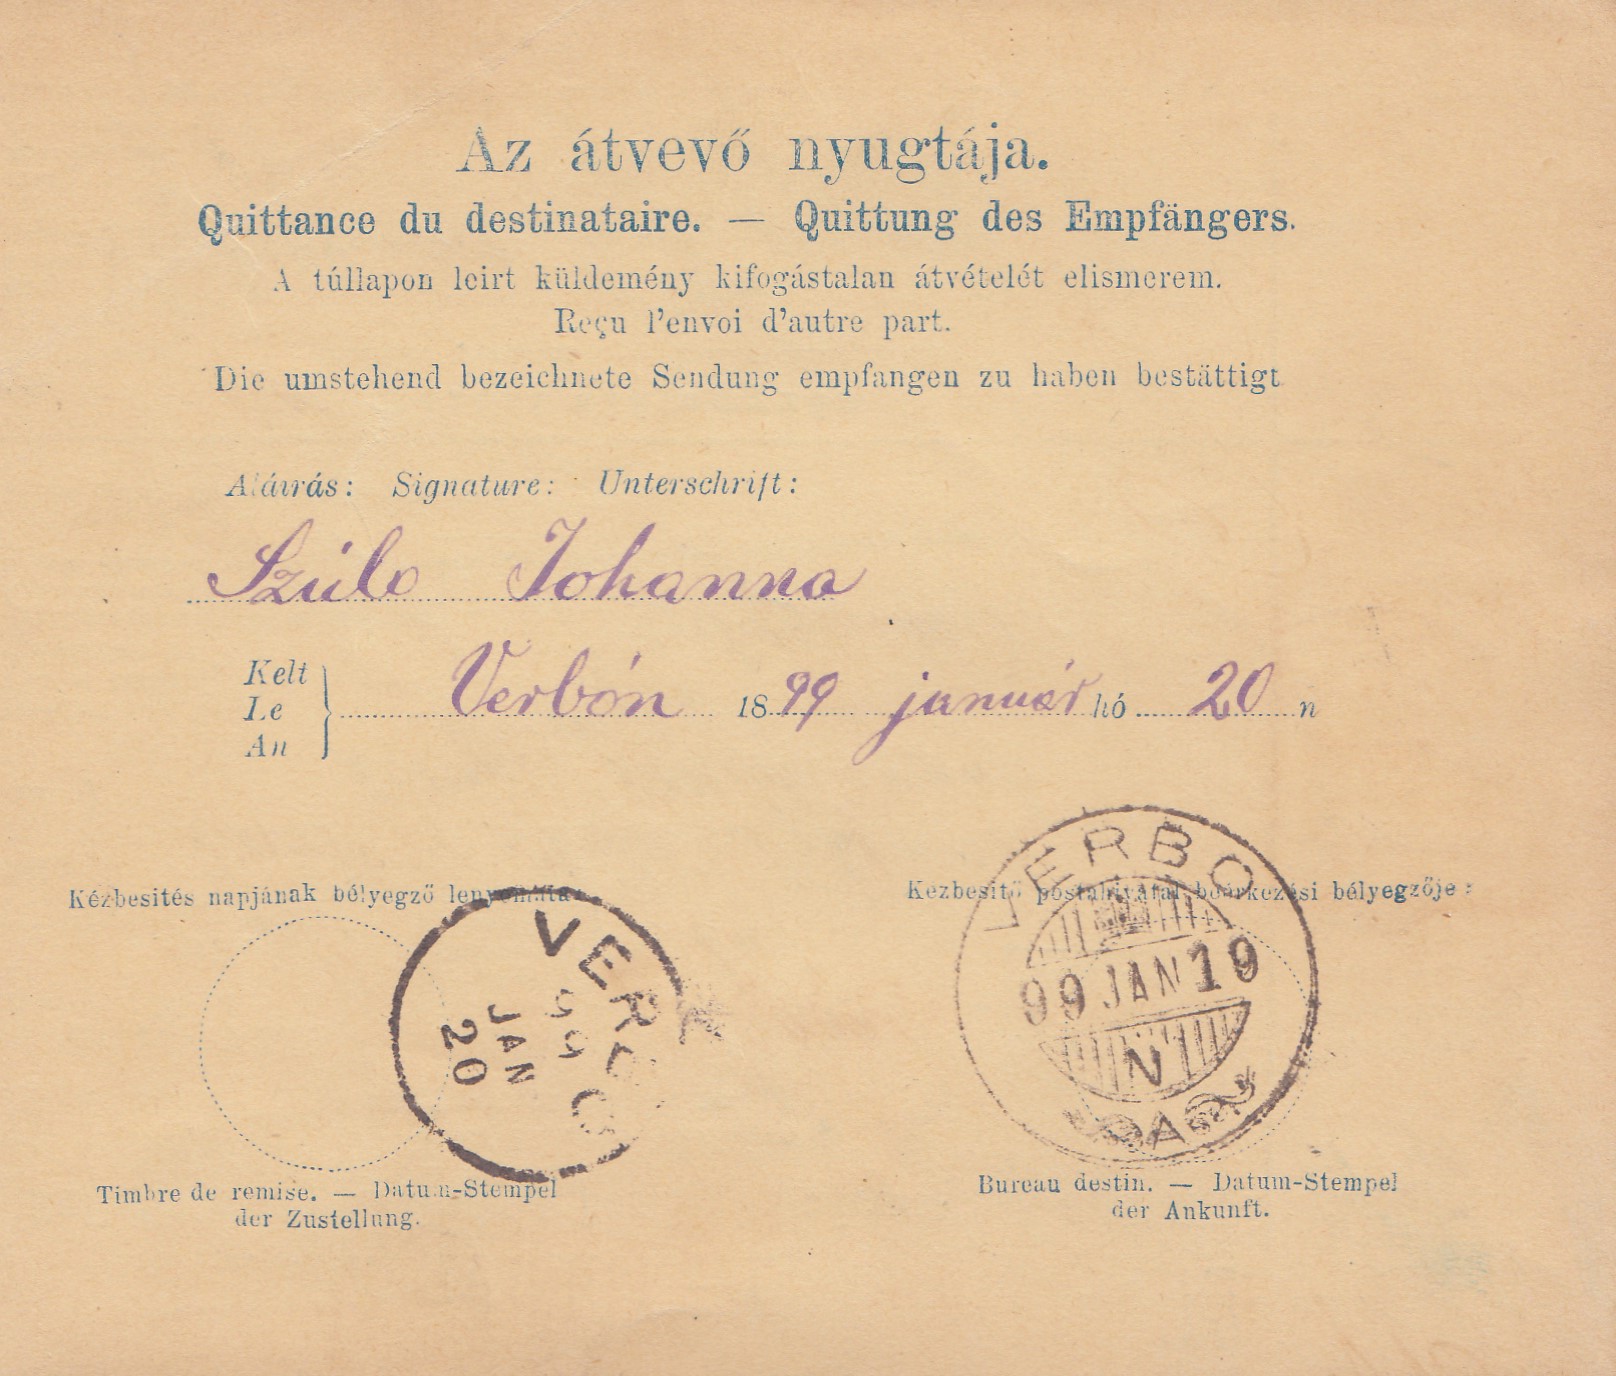 Az átvevő nyugtája.
Quittance du destinataire. — Quittung des Empfängers.
A túllapon leirt küldemény kifogástalan átvételét elismerem.
Reçu l'envoi d'autre part.
Die umstehend bezeichnete Sendung empfangen zu haben bestättigt
Aláirás: Signature: Unterschrift:
Johanna
Kelt
Le
An
Verbón 1899 január hó 20 n
Kézbesités napjának bélyegző lenyomata
Kézbesitő postahivatal beérkezési bélyegzője:
VERBO
99
JAN
20
VERBO
99 JAN 19
N
A
Timbre de remise. — Datum-Stempel
der Zustellung.
Bureau destin. — Datum-Stempel
der Ankunft.